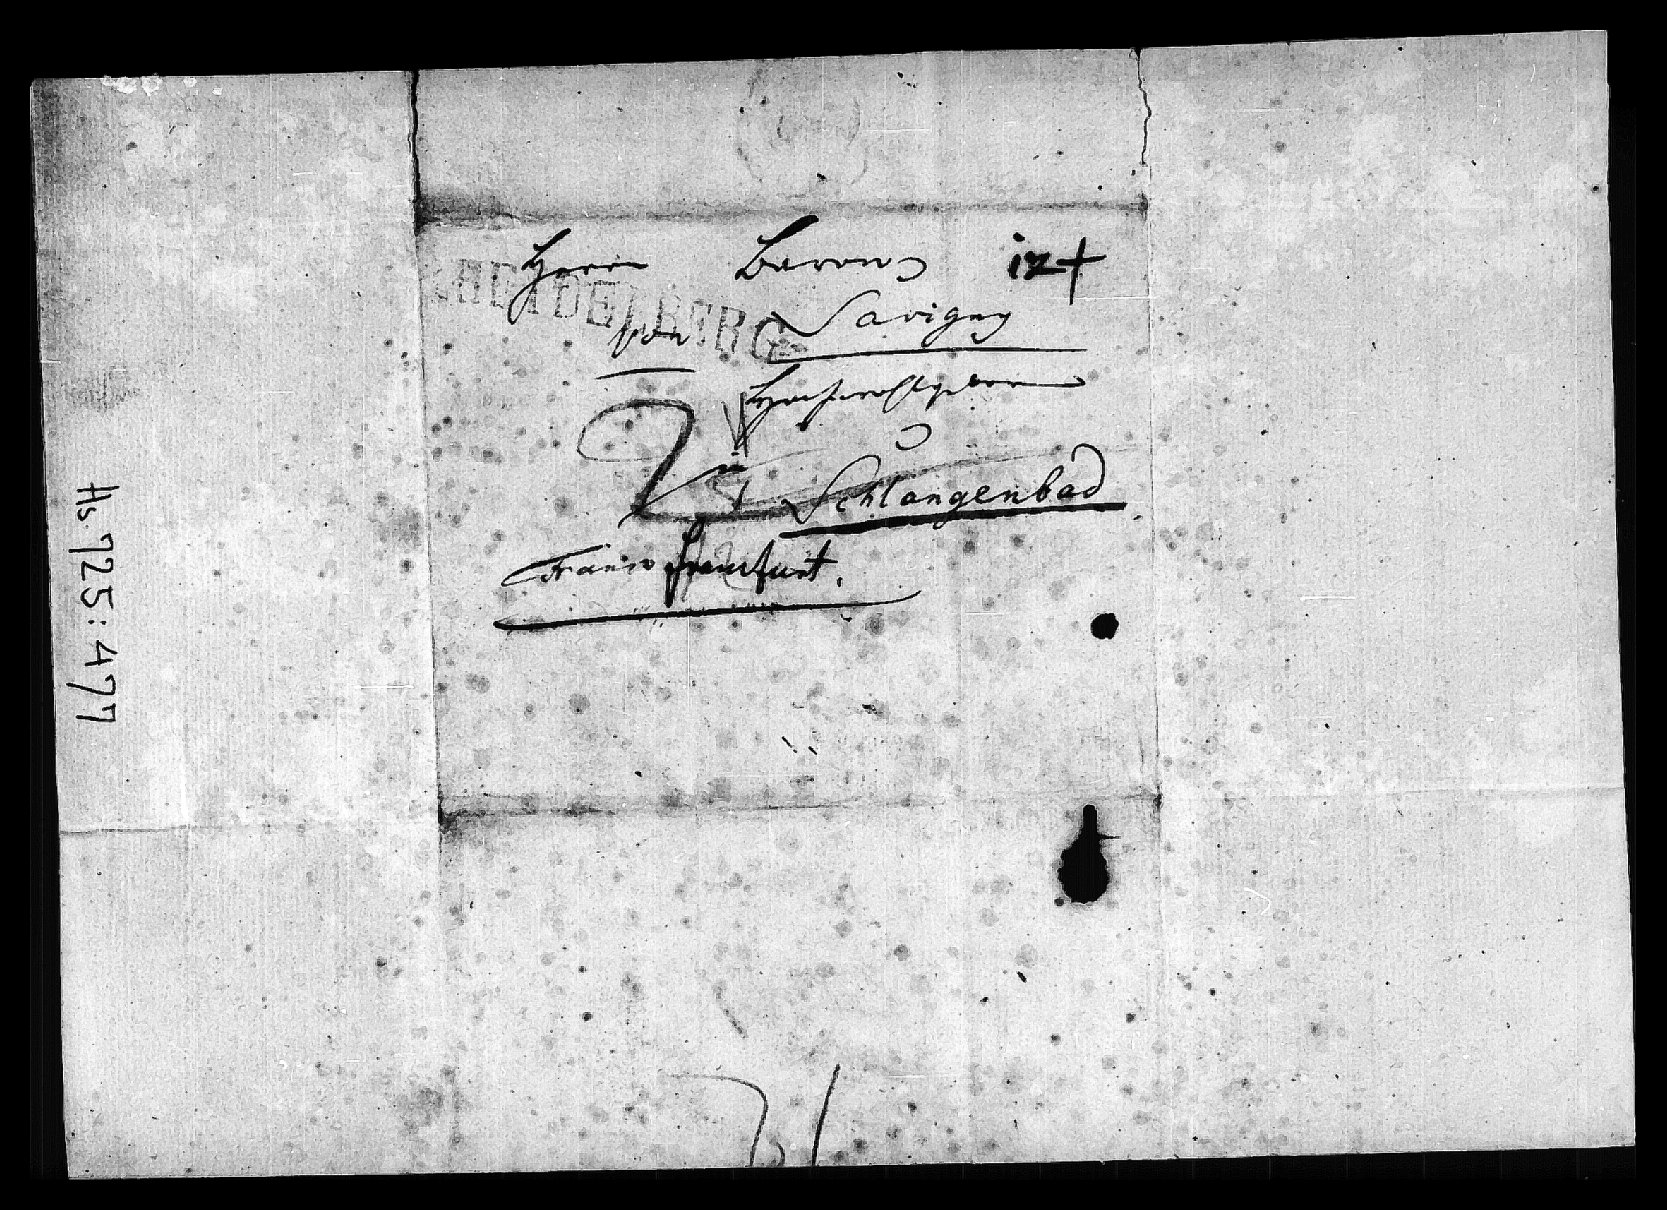 Herrn Baron 12+
HEIDELBERG
von Savigny
Hochwohlgeboren
in
Schlangenbad
Franco Frankfurt.
Hs. 725:477